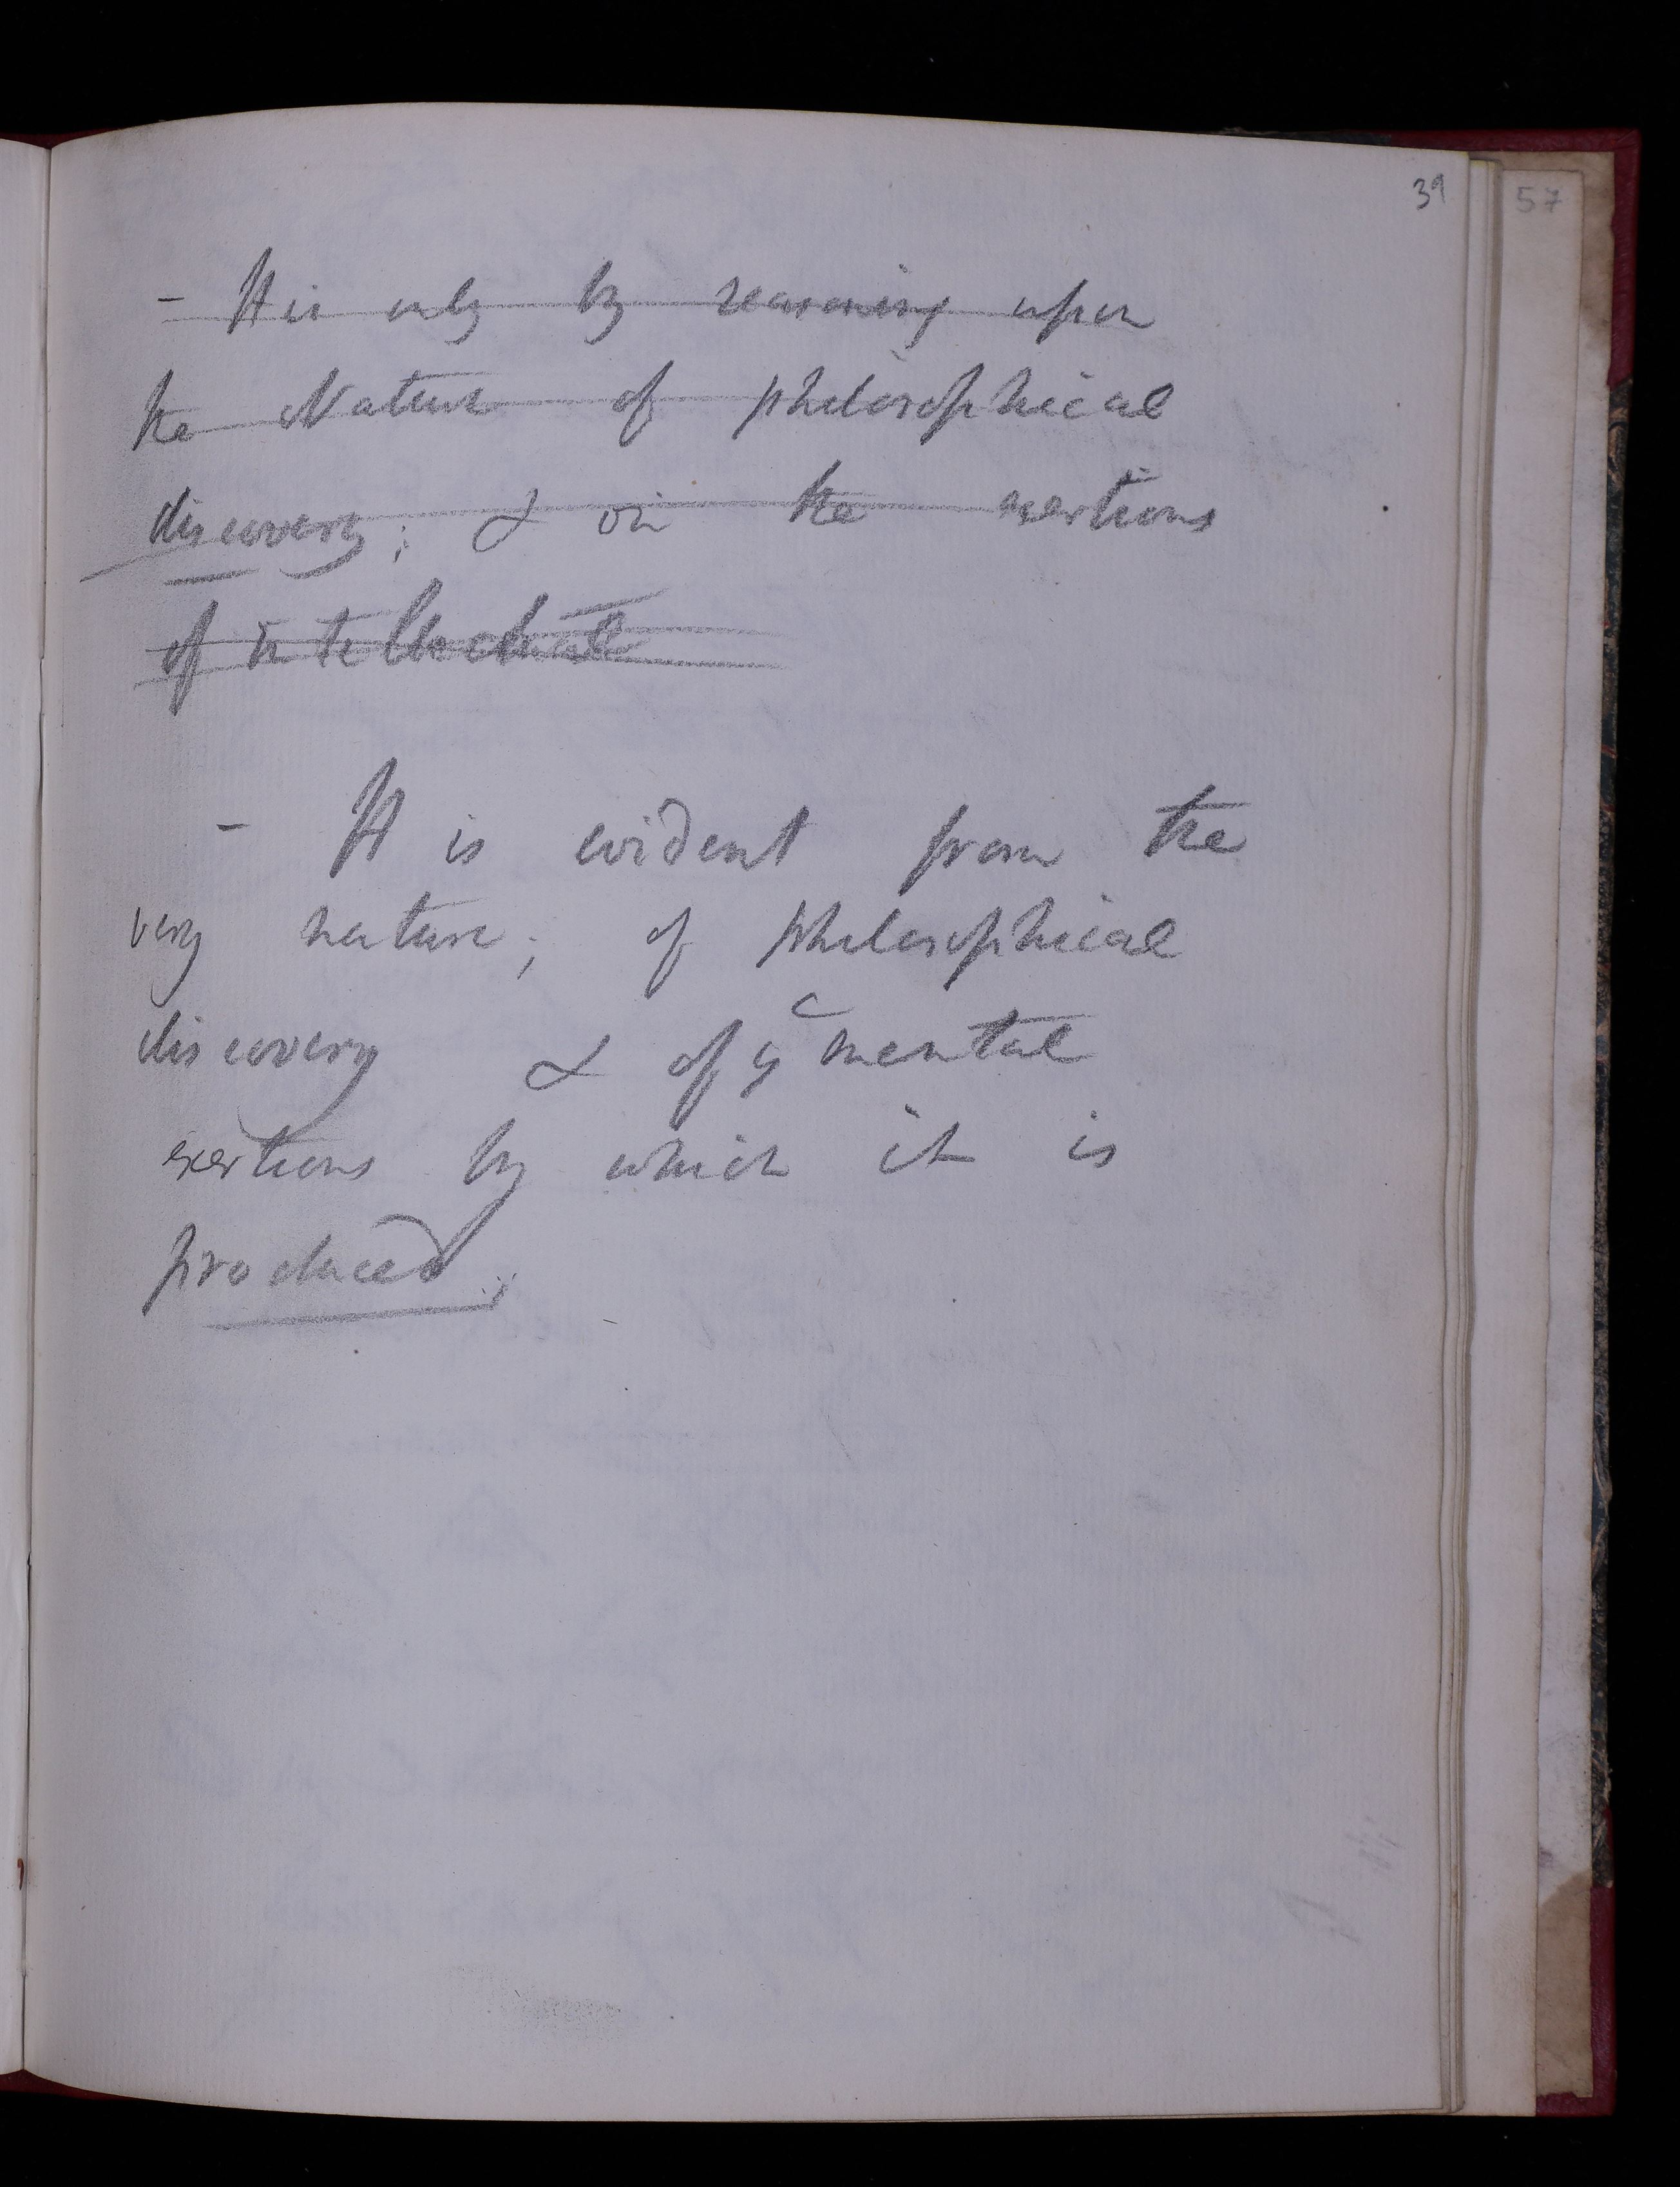 39
57
- It is only by reasoning upon
the Nature of philosophical
discovery; & on the exertions
of intellectual
- It is evident from the
very nature; of philosophical
discovery & of yᵉ mental
exertions by which it is
produced;